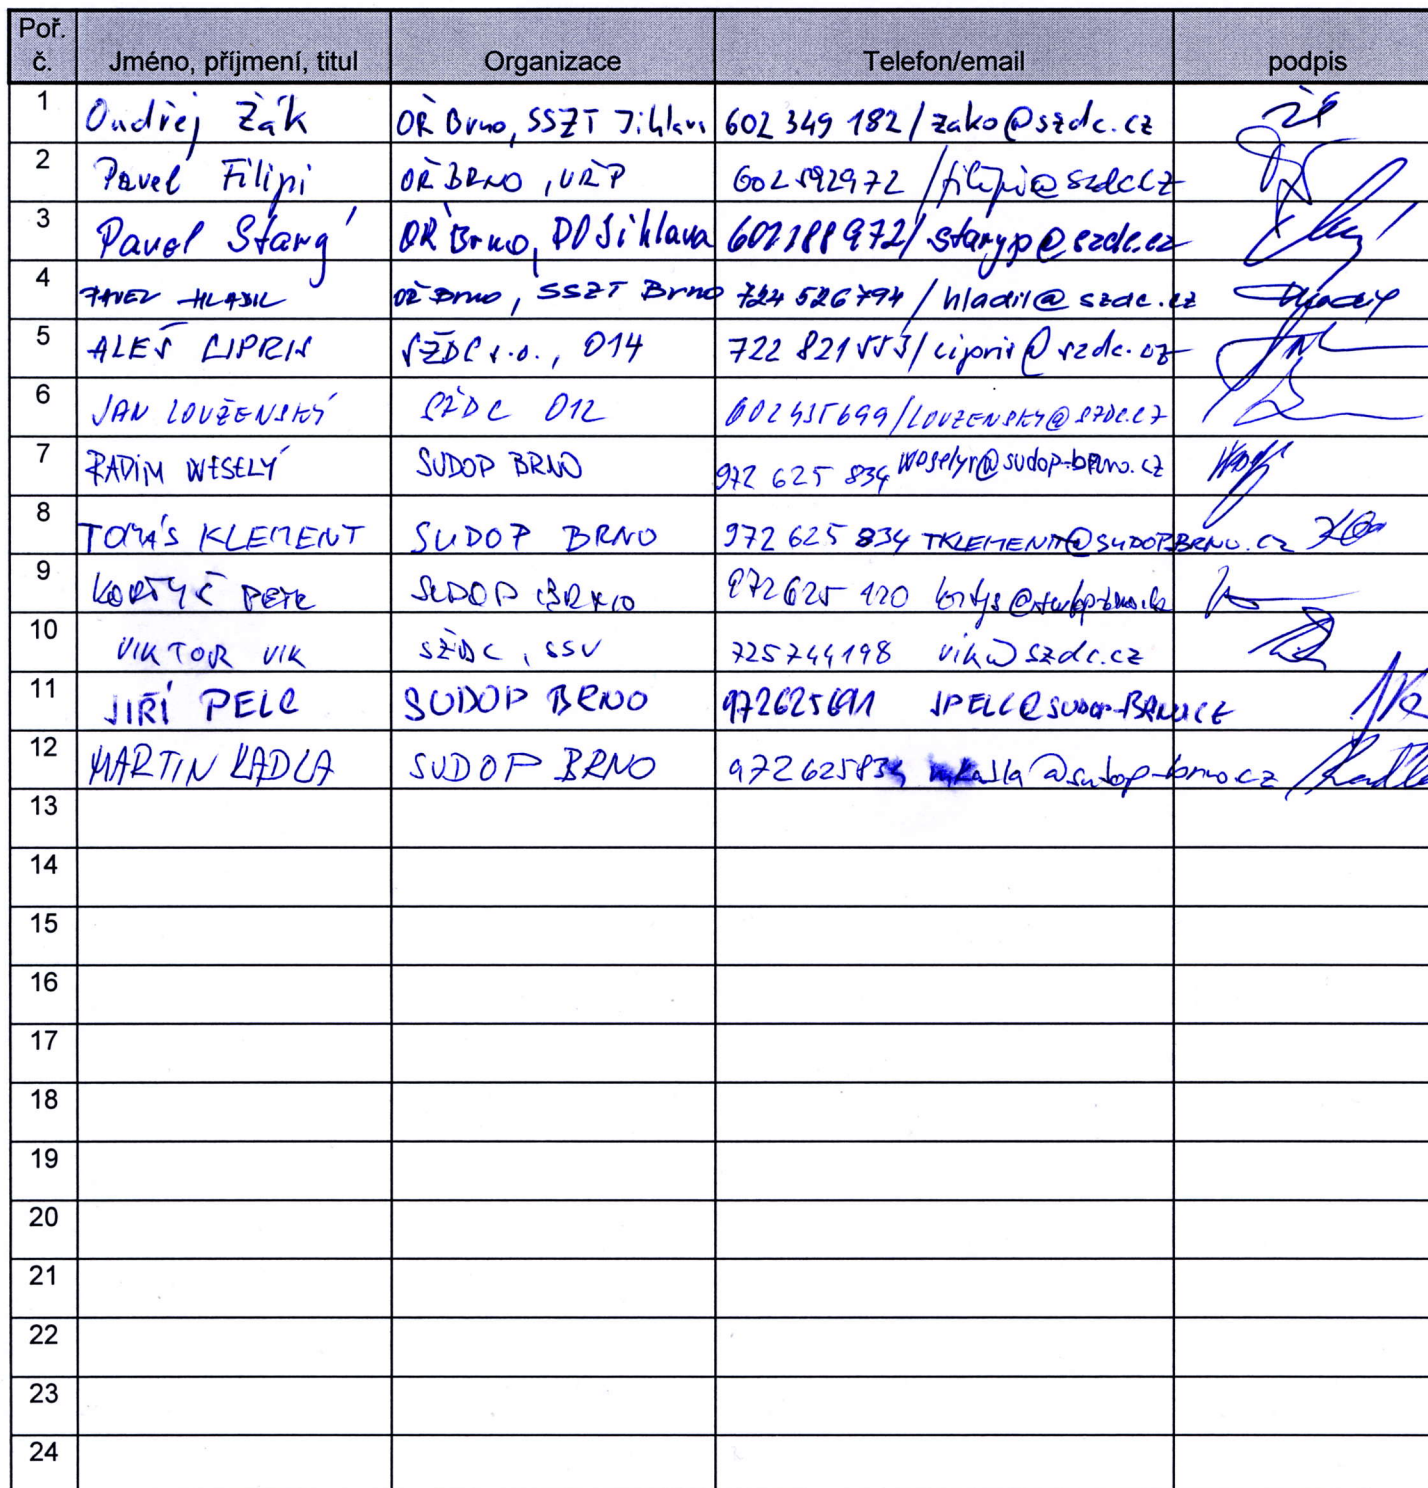 Poř. č. Jméno, příjmení, titul Organizace Telefon/email podpis
1 Ondřej Žák OŘ Brno, SSZT Jihlava 602 349 182 / zako@szdc.cz
2 Pavel Filipi OŘ BRNO, UŘP 602592972 / filipi@szdc.cz
3 Pavel Starý OŘ Brno, PO Jihlava 602188972 / staryp@szdc.cz
4 PAVEL HLADIL OŘ Brno, SSZT Brno 724 526794 / hladil@szdc.cz
5 ALEŠ CIPRIS SŽDC s.o., 014 722 821553 / cipris@szdc.cz
6 JAN LOUŽENSKÝ SŽDC 012 LOUZENSKY@SZDC.CZ
7 RADIM WESELÝ SUDOP BRNO 972 625 834 weselyr@sudop-brno.cz
8 TOMÁŠ KLEMENT SUDOP BRNO 972 625 834 TKLEMENT@SUDOPBRNO.CZ
9 KORTYŠ PETR SUDOP BRNO 972625 120
10 VIKTOR VIK SŽDC, SSV 725744198 vik@szdc.cz
11 JIŘÍ PELC SUDOP BRNO 972625691 JPELC@SUDOP-BRNO.CZ
12 MARTIN KADLA SUDOP BRNO 972625834 mkadla@sudop-brno.cz
13
14
15
16
17
18
19
20
21
22
23
24